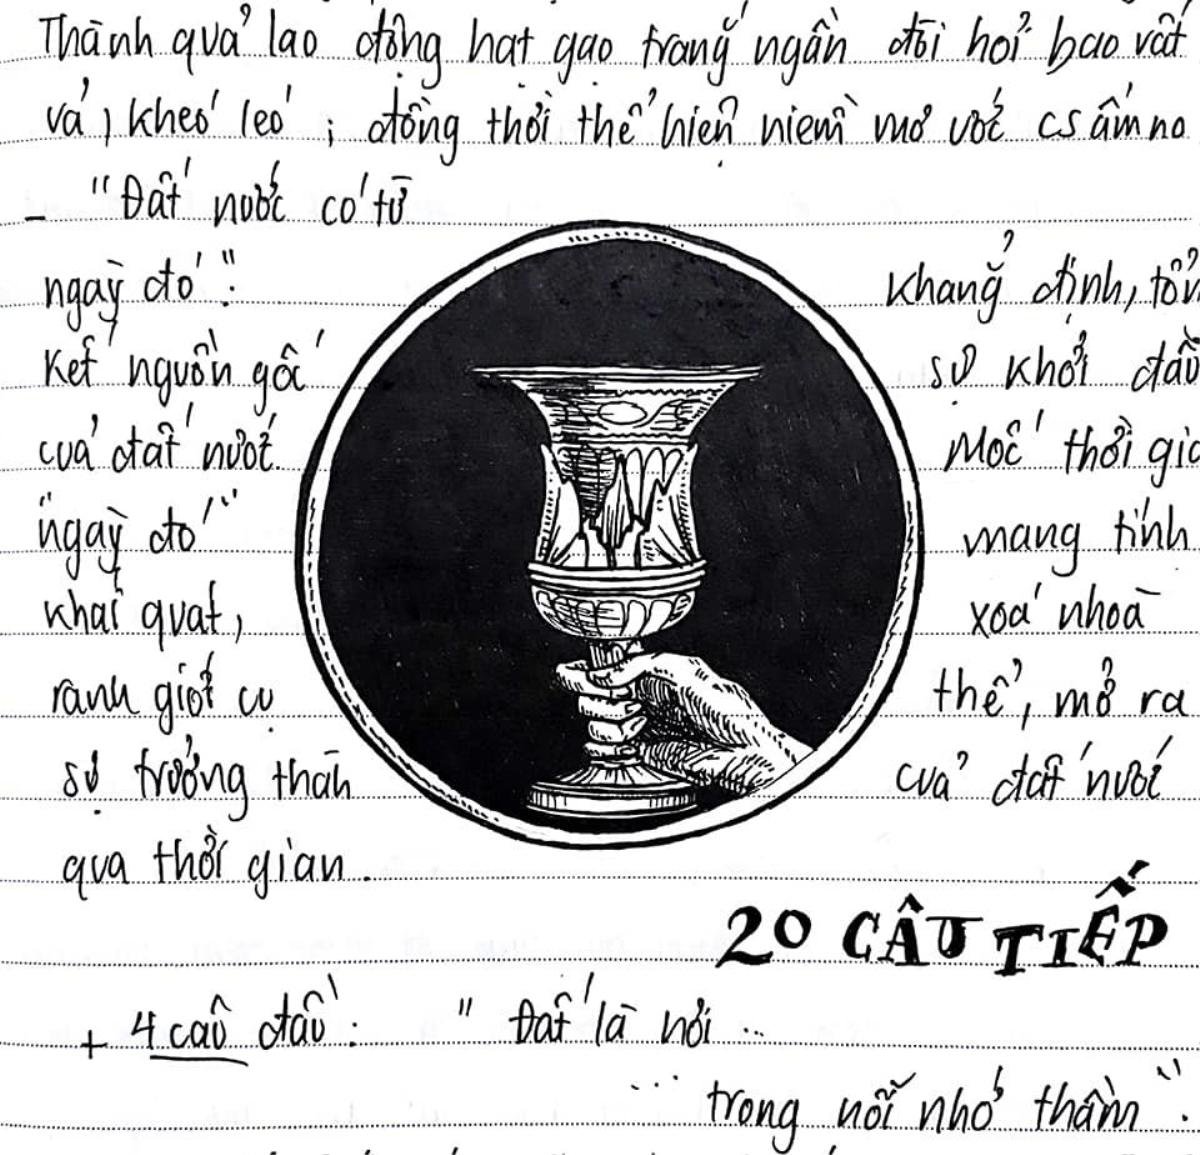 Thành quả lao động hạt gạo trắng ngần đòi hỏi bao vất
vả, khéo léo ; đồng thời thể hiện niềm mơ ước cs ấm no
- "Đất nước có từ
ngày đó": Khẳng định, tổng
kết nguồn gốc sự khởi đầu
của đất nước. Mốc thời gia
"ngày đó" mang tính
khái quát, xoá nhoà
ranh giới cụ thể, mở ra
sự trưởng thàn của đất nước
qua thời gian.
20 CÂU TIẾP
+ 4 câu đầu: "Đất là nơi ...
... trong nỗi nhớ thầm".